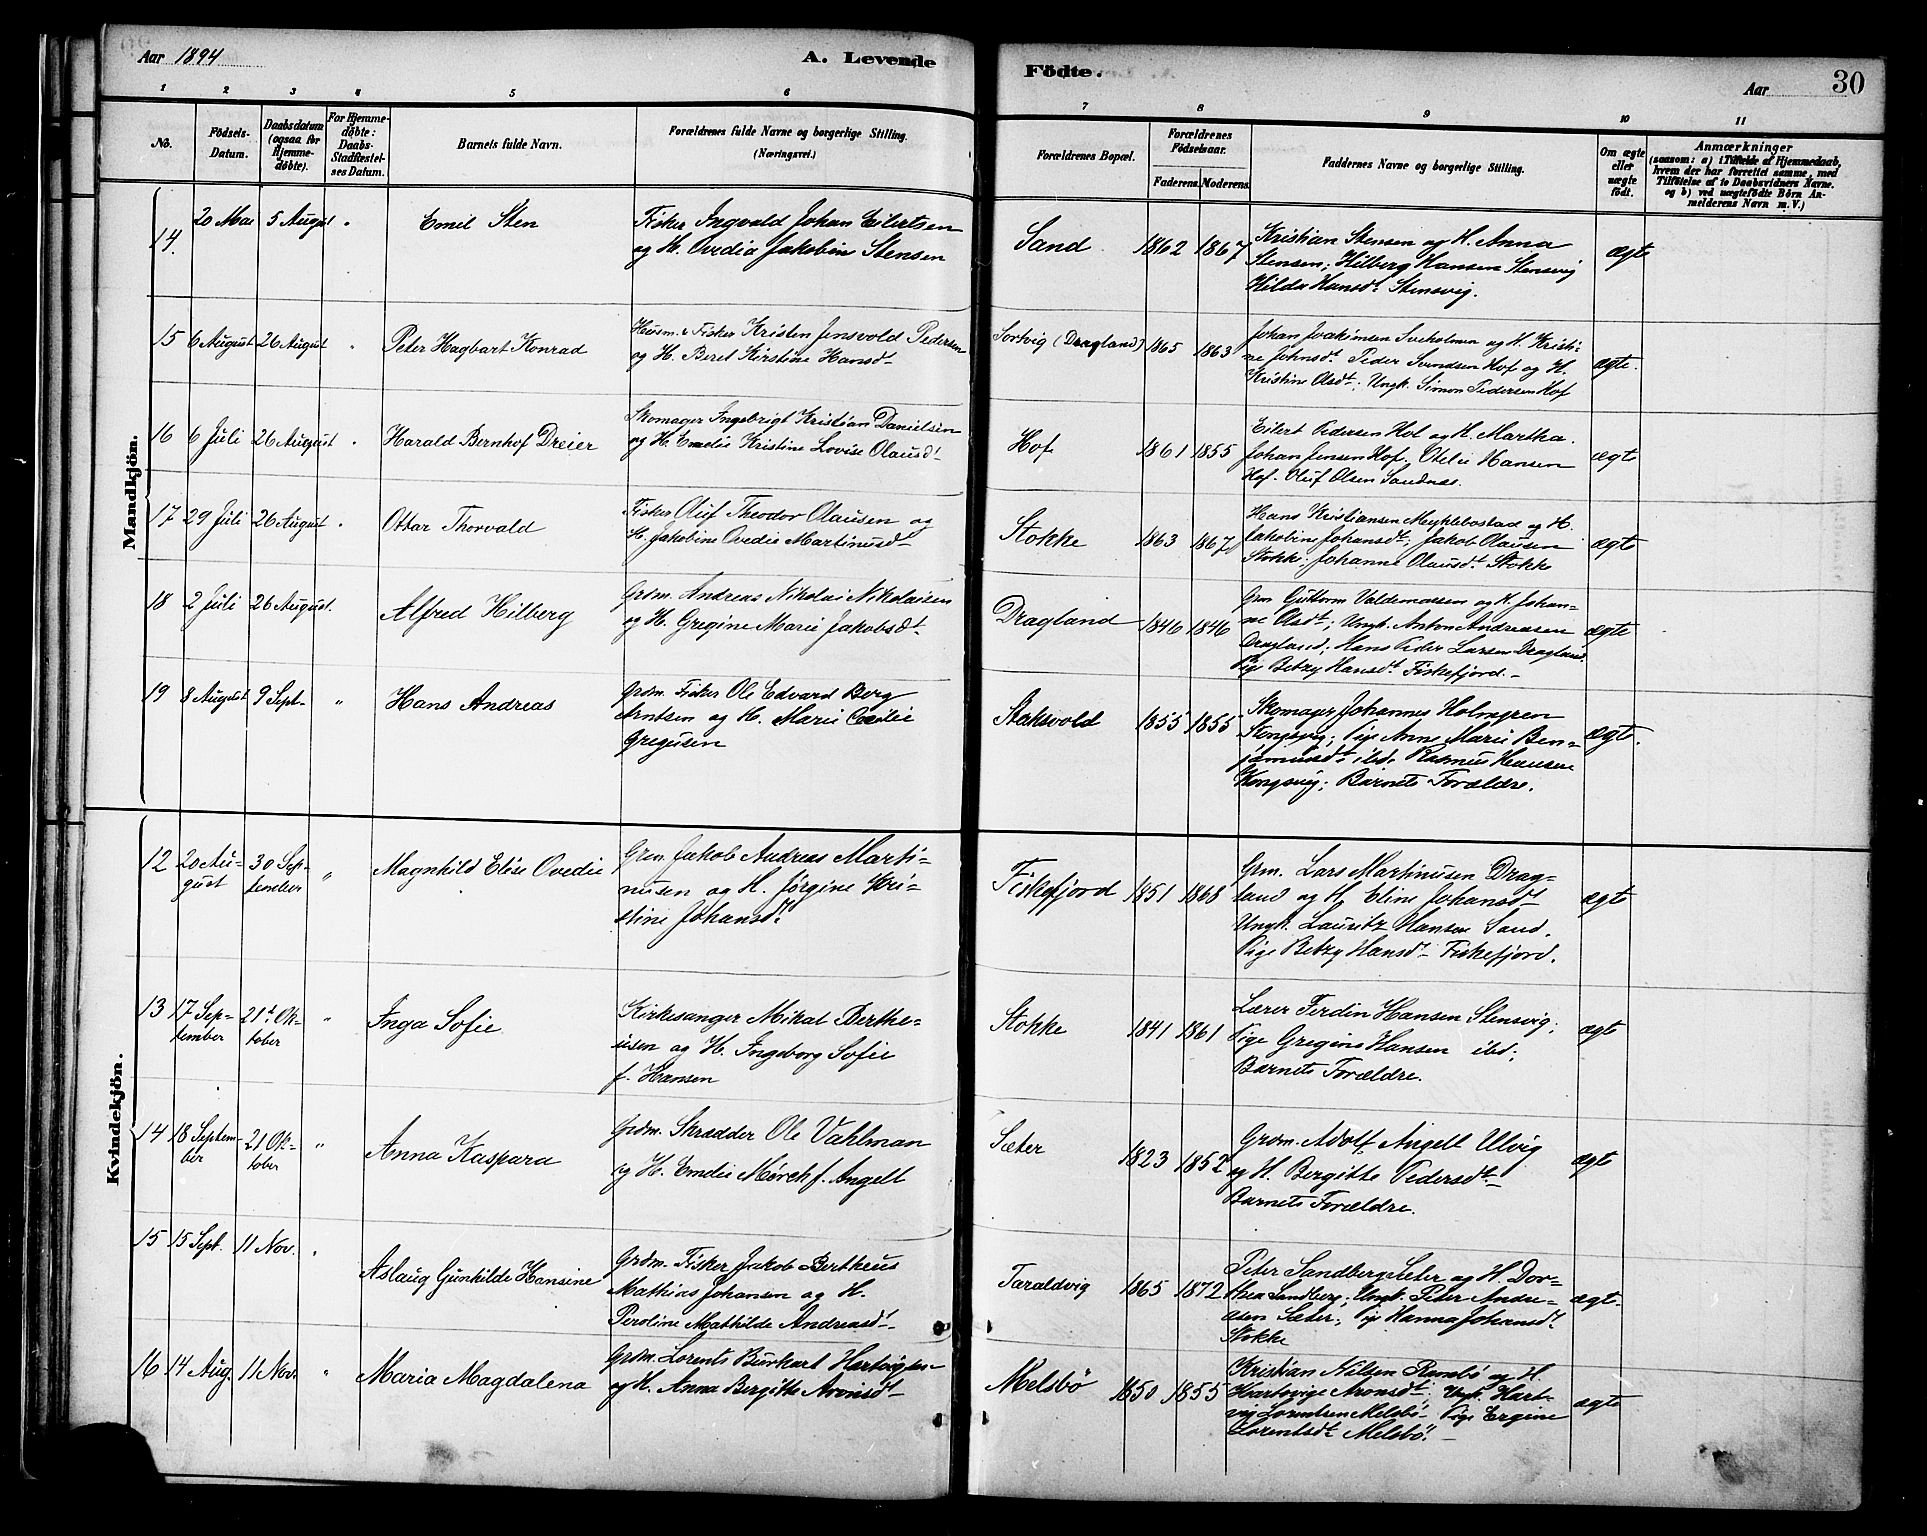 Aar 1894
A. Levende
Födte.
Aar
30
1 2 3 4 5 6 7 8 9 10 11
No.
Födsels-
Datum.
Daabsdatum
(ogsaa for
Hjemme-
døbte).
For Hjemme-
døbte:
Daabs-
Stadfæstel-
ses Datum.
Barnets fulde Navn.
Forældrenes fulde Navne og borgerlige Stilling.
(Næringsvei.)
Forældrenes Bopæl.
Forældrenes
Födselsaar.
Faderens. Moderens.
Faddernes Navne og borgerlige Stilling.
Om ægte
eller
uægte
födt.
Anmærkninger
(saasom: a) i Tilfælde af Hjemmedaab,
hvem der har forrettet samme, med
Tilföielse af to Daabsvidners Navne.
og b) ved uægtefödte Börn An-
melderens Navn m. V.)
Mandkjön.
14. 20 Mai 5 August " Emil Sten
Fisker Ingvald Johan Eilertsen
og H. Ovedia Jakobine Stensen
Sand 1862 1867
Kristian Stensen og H. Anna
Stensen; Hilberg Hansen Stensvig
Hilda Hansdt. Stensvig.
ægte
15 6 August 26 August " Peter Hagbart Konrad
Husm. & Fisker Kristen Jensvold Pedersen
og H. Beret Kirstine Hansdt
Sortvig (Dragland) 1865 1863
Johan Joakimsen Sveholmen og H. Kristi-
ne Johnsdt. Peder Svendsen Hof og H.
Kristine Olsdt; Ungk. Simon Pedersen Hof
ægte.
16 6 Juli 26 August " Harald Bernhof Dreier
Skomager Ingebrigt Kristian Danielsen
og H. Emelie Kristine Lovise Olausdt
Hof 1861 1855
Eilert Pedersen Hol og H. Martha.
Johan Jensen Hof. Otelie Hansen
Hof. Oluf Olsen Sandnæs.
ægte
17 29 Juli 26 August " Ottar Thorvald
Fisker Oluf Theodor Olausen og
H. Jakobine Ovedie Martinusdt
Stokke 1863 1867
Hans Kristiansen Myklebostad og H.
Jakobine Johansdt; Jakob Olausen
Stokke; Johanne Olausdt Stokke
ægte
18 2 Juli 26 August. Alfred Hilberg
Grdm. Andreas Nikolai Nikolaisen
og H. Gregine Marie Jakobsdt
Dragland 1846 1846
Grm Guttorm Valdemarsen og H. Johan-
ne Olsdt; Ungk. Anton Andreasen
Dragland; Hans Peder Larsen Dragland.
Pige Betzy Hansdt Fiskefjord.
ægte
19 8 August 9 Sept " Hans Andreas
Grdm. Fisker Ole Edvard Berg
Arntsen og H. Marie Cecilie
Gregusen
Staksvold 1855 1855
Skomager Johannes Holmgren
Kongsvig; Pige Anne Marie Ben-
jaminsdt ibd. Rasmus Hansen
Kongsvig; Barnets Forældre.
ægte.
Kvindekjön.
12 20 Au-
gust 30 Sep-
tember " Magnhild Elise Ovedie
Grm. Jakob Andreas Marti-
nusen og H. Jørgine Kri-
stine Johansdt
Fiskefjord 1851 1868
Grm. Lars Martinusen Drag-
land og H. Eline Johansdt
Ungk. Lauritz Hansen Sand.
Pige Betzy Hansdt Fiskefjord.
ægte
13 17 Sep-
tember 21t Ok-
tober " Inga Sofie
Kirkesanger Mikal Berthe-
usen og H. Ingeborg Sofie
f. Hansen
Stokke 1841 1861
Lærer Ferdin Hansen Stensvig;
Pige Gregine Hansen ibd;
Barnets Forældre.
ægte
14 18 Septem-
ber 21 Ok-
tober " Anna Kaspara
Grdm. Skrædder Ole Vahlman
og H. Emelie Mørch f. Angell
Sæter 1823 1852
Grdm. Adolf Angell Ulvig
og H. Bergitte Pedersdt
Barnets Forældre.
ægte
15 15 Sept. 11 Nov. " Aslaug Gunhilde Hansine
Grdm. Fisker Jakob Bertheus
Mathias Johansen og H.
Peroline Mathilde Andreasdt
Taraldvig 1865 1872
Peter Sandberg Sæter og H. Dor-
thea Sandberg; Ungk. Peter Andre-
asen Sæter; Pige Hanna Johansdt
Stokke
ægte.
16 14 Aug. 11 Nov. " Maria Magdalena
Grdm. Lorents Burhart Hartvigsen
og H. Anna Bergitte Aronsdt
Melsbö 1850 1855
Kristian Nilsen Rembö og H.
Hartvige Aronsdt; Ungk. Hart-
vig Lorentsen Melsbö. Pige Ergine
Lorentsdt Melsbö.
ægte